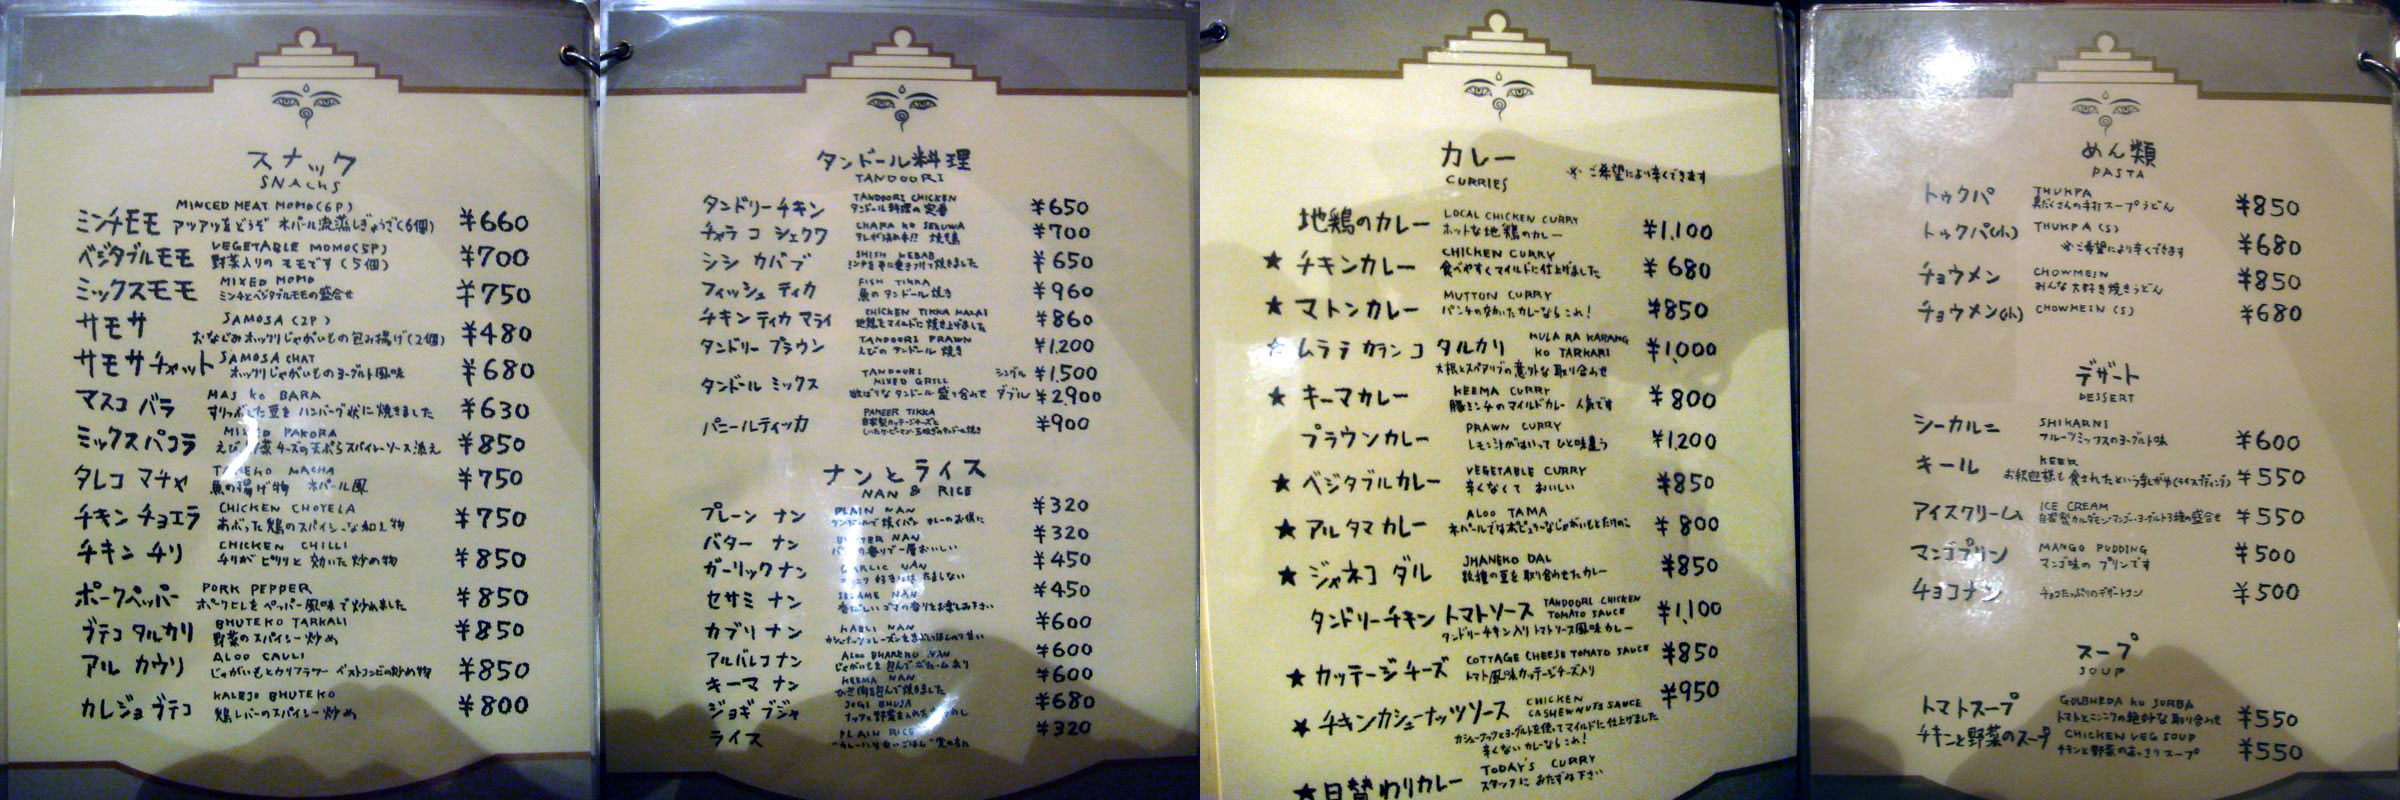 スナック
SNACKS
MINCED MEAT MOMO (6P)
ミンチモモ アツアツをどうぞ ネパール流蒸しぎょうざ(6個) ¥660
VEGETABLE MOMO (5P)
ベジタブルモモ 野菜入りのモモです(5個) ¥700
MIXED MOMO
ミックスモモ ミンチとベジタブルモモの盛合せ ¥750
SAMOSA (2P)
サモサ おなじみホックリじゃがいもの包み揚げ(2個) ¥480
SAMOSA CHAT
サモサチャット ホックリじゃがいものヨーグルト風味 ¥680
MAS KO BARA
マスコ バラ すりつぶした豆をハンバーグ状に焼きました ¥630
MIXED PAKORA
ミックスパコラ チーズの天ぷらスパイシーソース添え ¥850
MACHA
タレコ マチャ 魚の揚げ物 ネパール風 ¥750
CHICKEN CHOYELA
チキン チョエラ あぶった鶏のスパイシーな和え物 ¥750
CHICKEN CHILLI
チキン チリ チリがピリリと効いた炒め物 ¥850
PORK PEPPER
ポークペッパー ポークヒレをペッパー風味で炒めました ¥850
BHUTEKO TARKALI
ブテコ タルカリ 野菜のスパイシー炒め ¥850
ALOO CAULI
アル カウリ じゃがいもとカリフラワー ベストコンビの炒め物 ¥850
KALEJO BHUTEKO
カレジョ ブテコ 鶏レバーのスパイシー炒め ¥800
タンドール料理
TANDOORI
TANDOORI CHICKEN
タンドリーチキン タンドール料理の定番 ¥650
CHARA KO SEKUWA
チャラ コ シェクワ ¥700
SHISH KEBAB
シシ カバブ ¥650
FISH TIKKA
フィッシュ ティカ 魚のタンドール焼き ¥960
CHICKEN TIKKA MALAI
チキン ティカ マライ 地鶏をマイルドに焼き上げました ¥860
TANDOORI PRAWN
タンドリー プラウン えびのタンドール焼き ¥1,200
TANDOORI シングル ¥1,500
MIXED GRILL
タンドール ミックス 欲ばりなタンドール盛り合わせ ダブル ¥2,900
PANEER TIKKA
パニールティッカ 自家製カッテージチーズと ¥900
ナンとライス
NAN & RICE
PLAIN NAN
プレーン ナン タンドールで焼くパン カレーのお供に ¥320
バター ナン 香りで一層おいしい ¥320
GARLIC NAN
ガーリックナン ¥450
SESAME NAN
セサミ ナン 香ばしいゴマの香りをお楽しみ下さい ¥450
KABLI NAN
カブリ ナン ¥600
ALOO BHAREKO NAN
アルバレコナン じゃがいもを包んでボリュームあり ¥600
KEEMA NAN
キーマ ナン ひき肉を包んで焼きました ¥600
JOGI BHUJA
ジョギ ブジャ ¥680
PLAIN RICE
ライス ¥320
カレー
CURRIES
※ご希望により辛くできます
LOCAL CHICKEN CURRY
地鶏のカレー ホットな地鶏のカレー ¥1,100
CHICKEN CURRY
★ チキンカレー 食べやすくマイルドに仕上げました ¥680
MUTTON CURRY
★ マトンカレー パンチの効いたカレーならこれ! ¥850
MULA RA KARANG
ムラ ラ カラン コ タルカリ KO TARKARI ¥1,000
大根とスペアリブの意外な取り合わせ
KEEMA CURRY
★ キーマカレー 豚ミンチのマイルドカレー 人気です ¥800
PRAWN CURRY
プラウンカレー レモン汁がはいってひと味違う ¥1,200
VEGETABLE CURRY
★ ベジタブルカレー 辛くなくておいしい ¥850
ALOO TAMA
★ アルタマカレー ネパールではポピュラーなじゃがいもとたけのこ ¥800
JHANEKO DAL
★ ジャネコ ダル 数種の豆を取り合わせたカレー ¥850
TANDOORI CHICKEN
タンドリーチキン トマトソース TOMATO SAUCE ¥1,100
タンドリーチキン入りトマトソース風味カレー
COTTAGE CHEESE TOMATO SAUCE
★ カッテージチーズ トマト風味カッテージチーズ入り ¥850
CHICKEN
★ チキンカシューナッツソース CASHEWNUTS SAUCE ¥950
カシューナッツとヨーグルトを使ってマイルドに仕上げました
辛くないカレーならこれ!
TODAY'S CURRY
★ 日替わりカレー スタッフにおたずね下さい
めん類
PASTA
THUKPA
トゥクパ 具だくさんの手打スープうどん ¥850
トゥクパ(小) THUKPA (S) ¥680
※ご希望により辛くできます
CHOWMEIN
チョウメン みんな大好き焼きうどん ¥850
チョウメン(小) CHOWMEIN (S) ¥680
デザート
DESSERT
SHIKARNI
シーカルニ フルーツミックスのヨーグルト味 ¥600
KEER
キール お釈迦様も食されたという乳がゆ(ライスプディング) ¥550
ICE CREAM
アイスクリーム 自家製カルダモン・マンゴー・ヨーグルト3種の盛合せ ¥550
MANGO PUDDING
マンゴプリン マンゴ味のプリンです ¥500
チョコナン チョコたっぷりのデザートナン ¥500
スープ
SOUP
GOLBHEDA KO SORBA
トマトスープ トマトとニンニクの絶妙な取り合わせ ¥550
CHICKEN VEG SOUP
チキンと野菜のスープ チキンと野菜のあっさりスープ ¥550